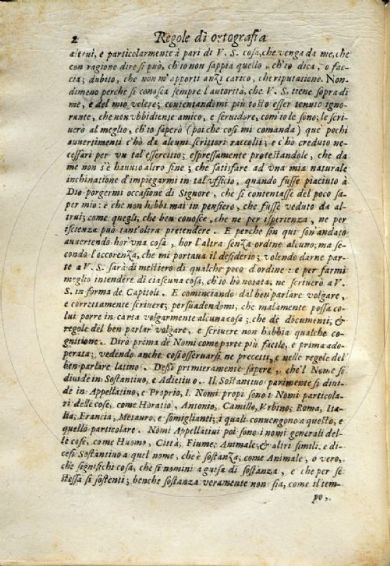 2 Regole di ortografia
altrui, e particolarmente à pari di V. S. cosa, che venga da me, che
con ragione dire si può, ch'io non sappia quello, ch'io dica, e fac-
cia; dubito, che non m'apporti anzi carico, che riputatione. Non-
dimeno perche si conosca sempre l'autorità, che V. S. tiene sopra di
me, e del mio volere; contentandomi più tosto esser tenuto igno-
rante, che non vbbidiente amico, e seruidore, com'io le sono; le scri-
uerò al meglio, ch'io saperò (poi che così mi comanda) que pochi
auuertimenti c'hò da alcuni scrittori raccolti; e c'ho creduto ne-
cessari per vn tal essercitio; espressamente protestandole, che da
me non s'è hauuto altro fine; che satisfare ad vna mia naturale
inchinatione d'impiegarmi in tal'vfficio, quando fusse piaciuto à
Dio porgermi occasione di Signore, che si contentasse del poco sa-
per mio: e che non hebbi mai in pensiero, che fusse veduto da al-
trui; come quegli, che ben conosce, che ne per isperienza, ne per
escienza può tant'oltra pretendere. E perche sin qui son'andato
auuertendo hor'vna cosa, hor l'altra senza ordine alcuno; ma se-
condo l'occorenza, che mi portaua il desiderio; volendo darne par-
te a V. S. sarà di mestiero di qualche poco d'ordine: e per farmi
meglio intendere di ciascuna cosa, ch'io hò notata, ne scriuerò a V.
S. in forma de Capitoli. E cominciando dal ben parlare volgare,
e correttamente scriuere; persuadendomi, che malamente possa co-
lui porre in carta volgarmente alcuna cosa; che de documenti, e
regole del ben parlar volgare, e scriuere non habbia qualche co-
gnitione. Dirò prima de Nomi come parte più facile, e prima ado-
perata; vedendo anche così osseruarsi ne precetti, e nelle regole del
ben parlare latino. Dessi primieramente sapere, che'l Nome si
diuide in Sostantiuo, e Adietiuo. Il Sostantiuo parimente si diui-
de in Appellatiuo, e Proprio, I Nomi propi sono i Nomi particola-
ri delle cose, come Horatio, Antonio, Camillo, Vrbino, Roma, Ita-
lia, Francia, Metauro, e somiglianti; i quali conuengono a questo, e
quello particolare. Nomi Appellatiui poi sono i nomi generali del-
le cose, come Huomo, Città, Fiume, Animale, & altri simili. e di-
cesi Sostantiuo a quel nome, che è sostanza, come Animale, o vero,
che significhi cosa, che si nomini a guisa di sostanza, e che per se
stessa si sostenti; benche sostanza veramente non sia, come il tem-
po,